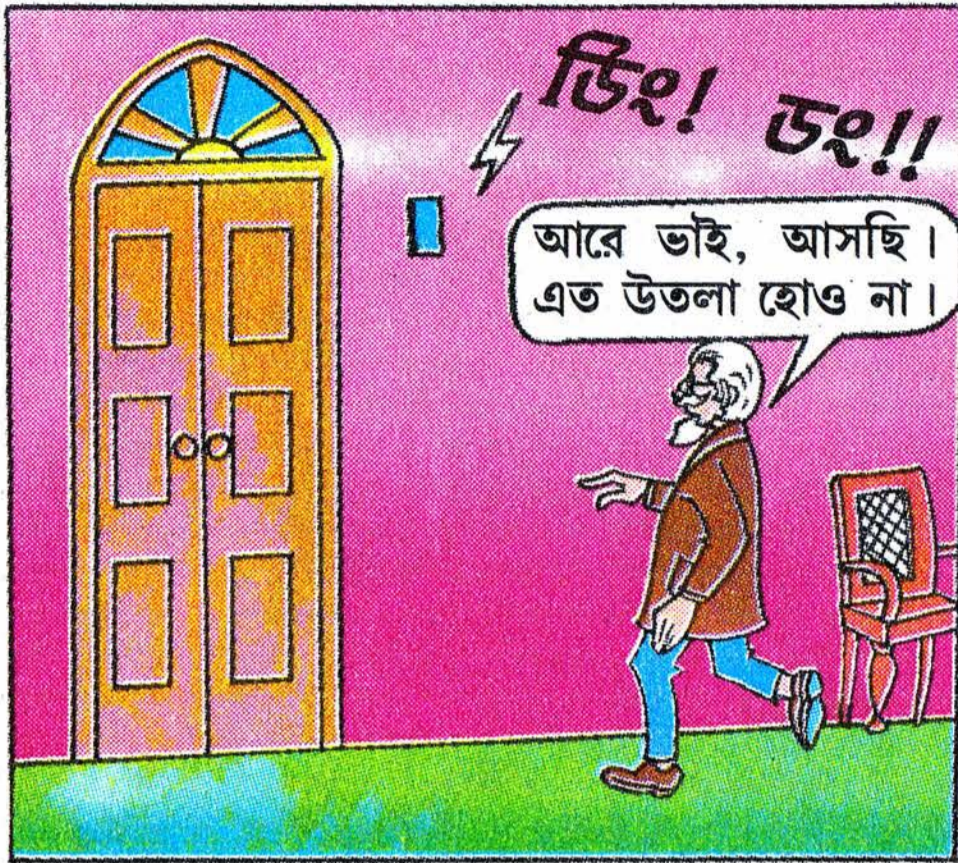 ডিং! ডং!!
আরে ভাই, আসছি।
এত উতলা হোও না।